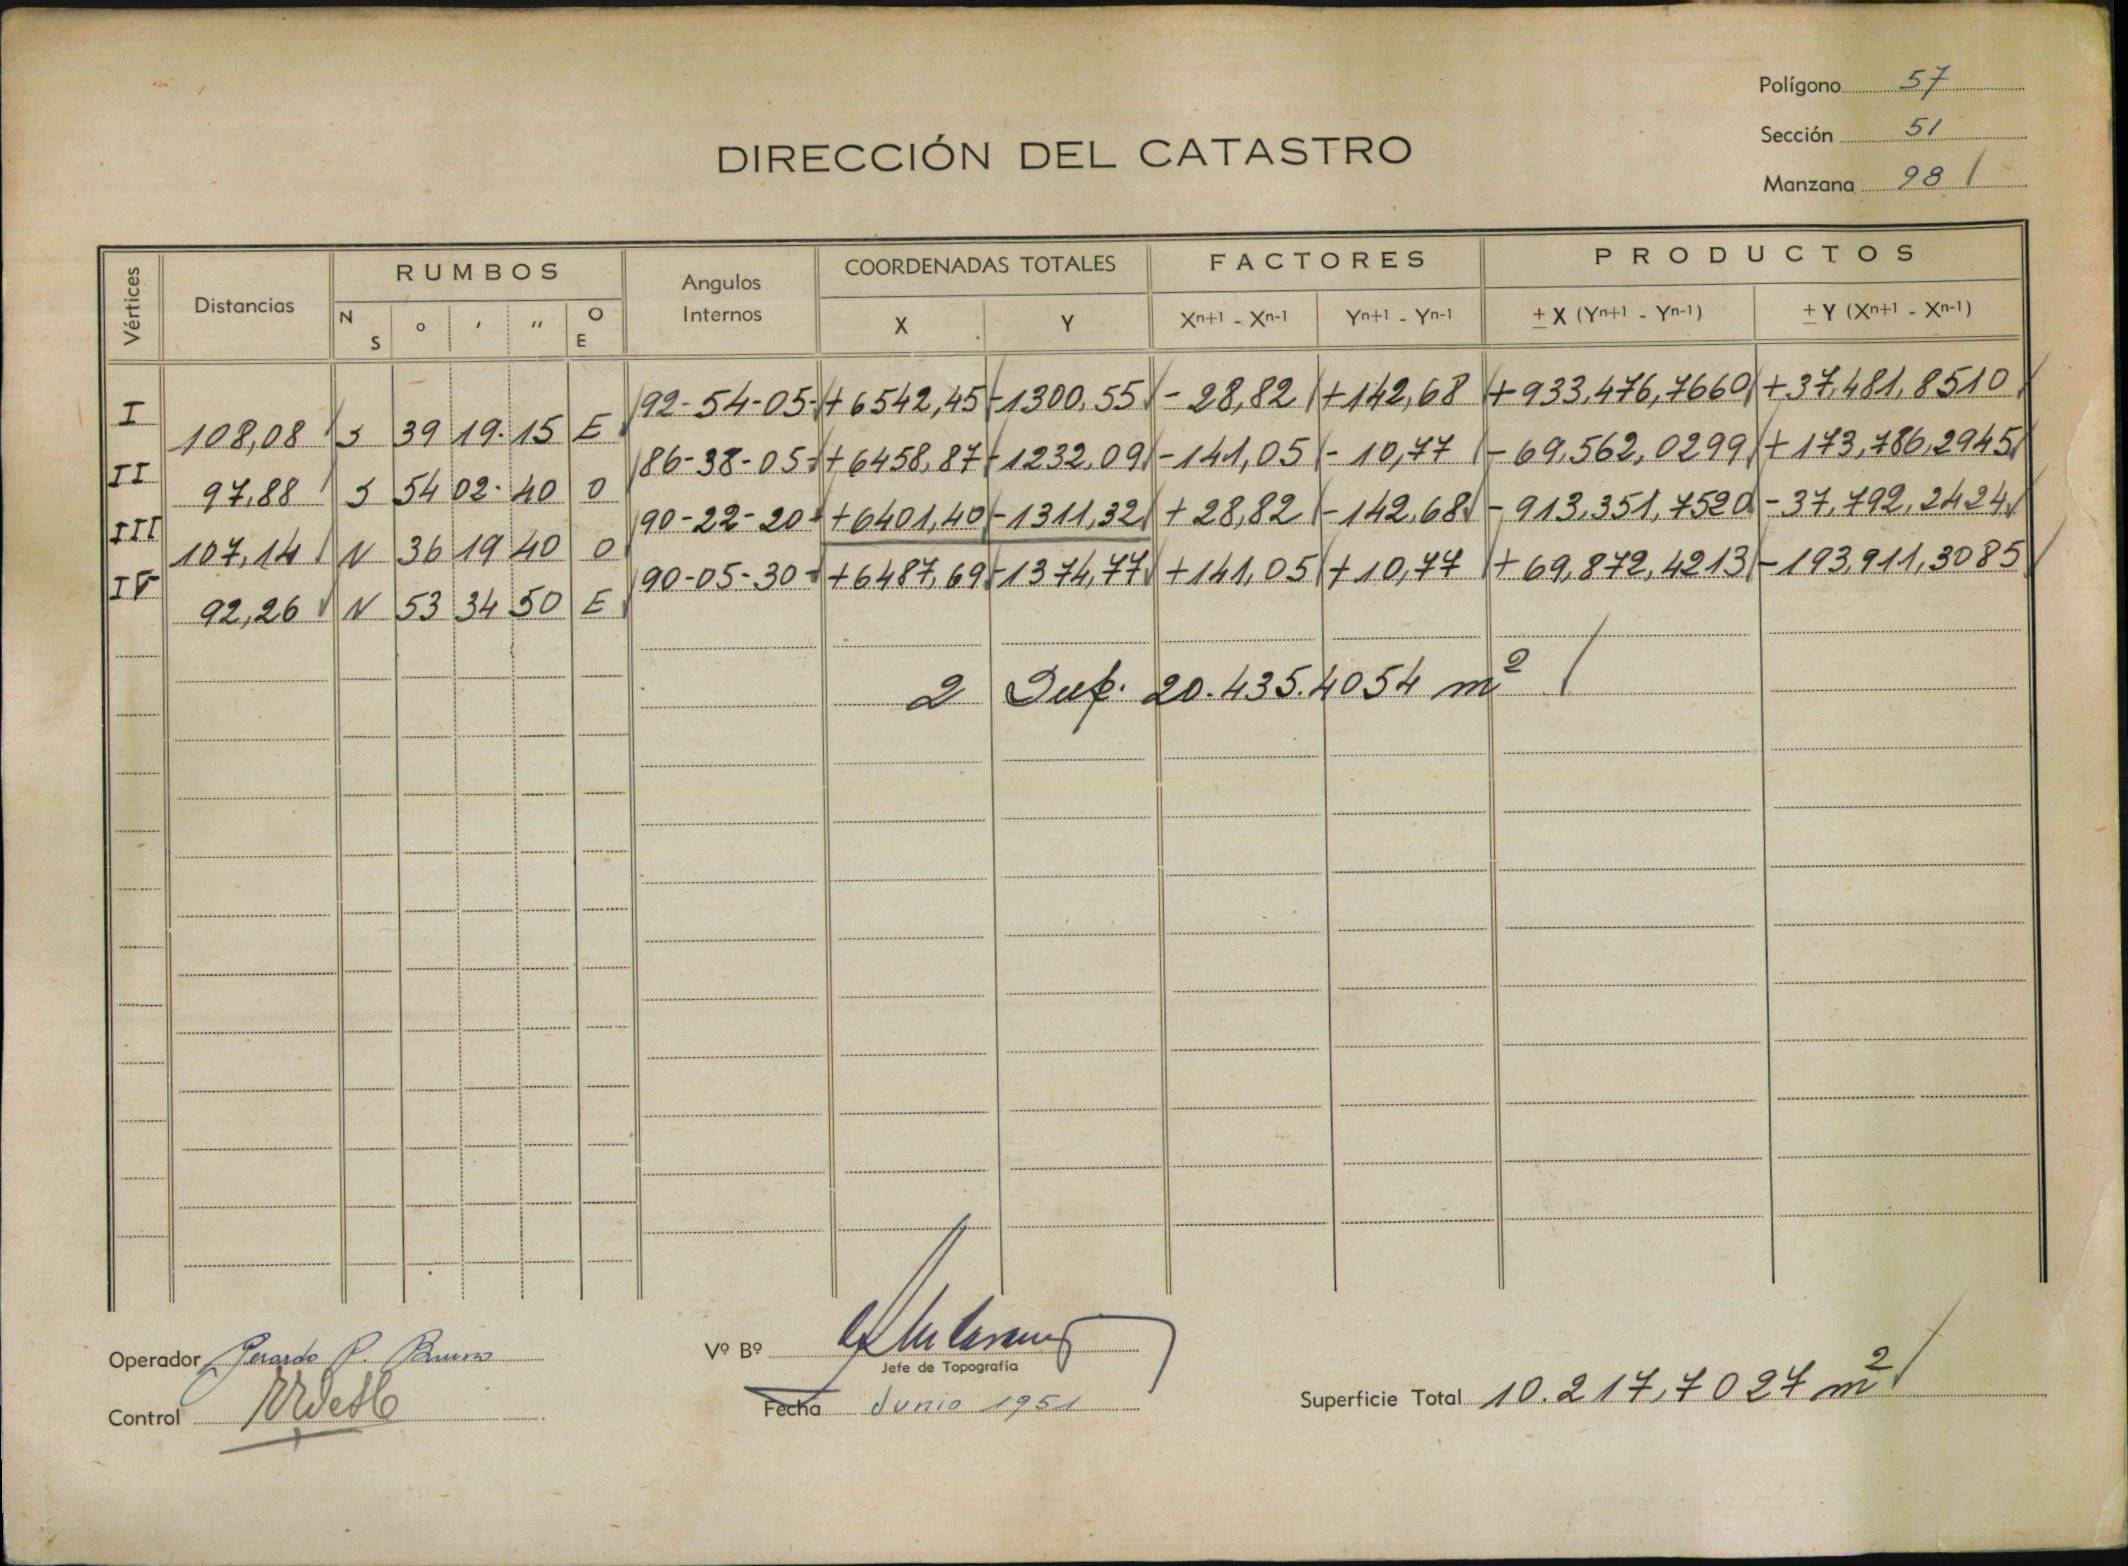 Polígono 57
Sección 51
Manzana 98
DIRECCIÓN DEL CATASTRO
Vértices Distancias RUMBOS Angulos Internos COORDENADAS TOTALES FACTORES PRODUCTOS
N S o ' " O E X Y Xn+1 - Xn-1 Yn+1 - Yn-1 ± X (Yn+1 - Yn-1) ± Y (Xn+1 - Xn-1)
I 92-54-05 +6542,45 -1300,55 -28,82 +142,68 +933.476,7660 +37.481,8510
108,08 S 39 19 15 E
II 86-38-05 +6458,87 -1232,09 -141,05 -10,77 -69.562,0299 +173.786,2945
97,88 S 54 02 40 O
III 90-22-20 +6401,40 -1311,32 +28,82 -142,68 -913.351,7520 -37.792,2424
107,14 N 36 19 40 O
IV 90-05-30 +6487,69 -1374,77 +141,05 +10,77 +69.872,4213 -193.911,3085
92,26 N 53 34 50 E
2 Sup. 20.435.4054 m²
Operador Gerardo P. Bruno
Vº Bº
Jefe de Topografía
Control
Fecha Junio 1951
Superficie Total 10.217,7027 m²